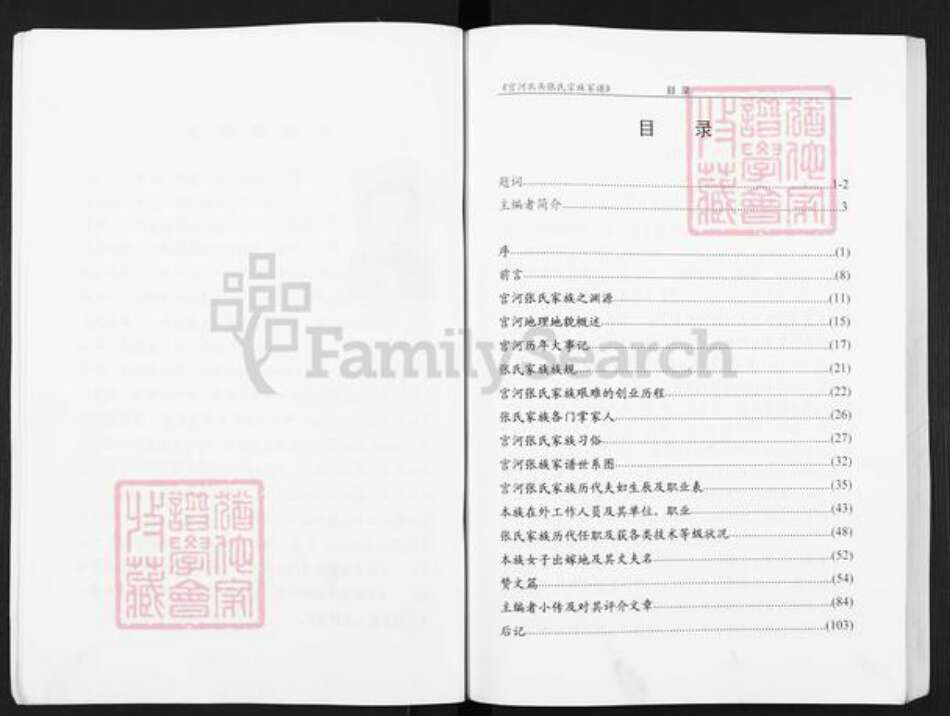 《宫河张氏宗族家谱》 目 录
目 录
题词 1-2
主编者简介 3
序 (1)
前言 (8)
宫河张氏家族之渊源 (11)
宫河地理地貌概述 (15)
宫河历年大事记 (17)
张氏家族族规 (21)
宫河张氏家族艰难的创业历程 (22)
张氏家族各门掌家人 (26)
宫河张氏家族习俗 (27)
宫河张族家谱世系图 (32)
宫河张氏家族历代夫妇生辰及职业表 (35)
本族在外工作人员及其单位、职业 (43)
张氏家族历代任职及获各类技术等级状况 (48)
本族女子出嫁地及其丈夫名 (52)
赞文篇 (54)
主编者小传及对其评介文章 (84)
后记 (103)
FamilySearch